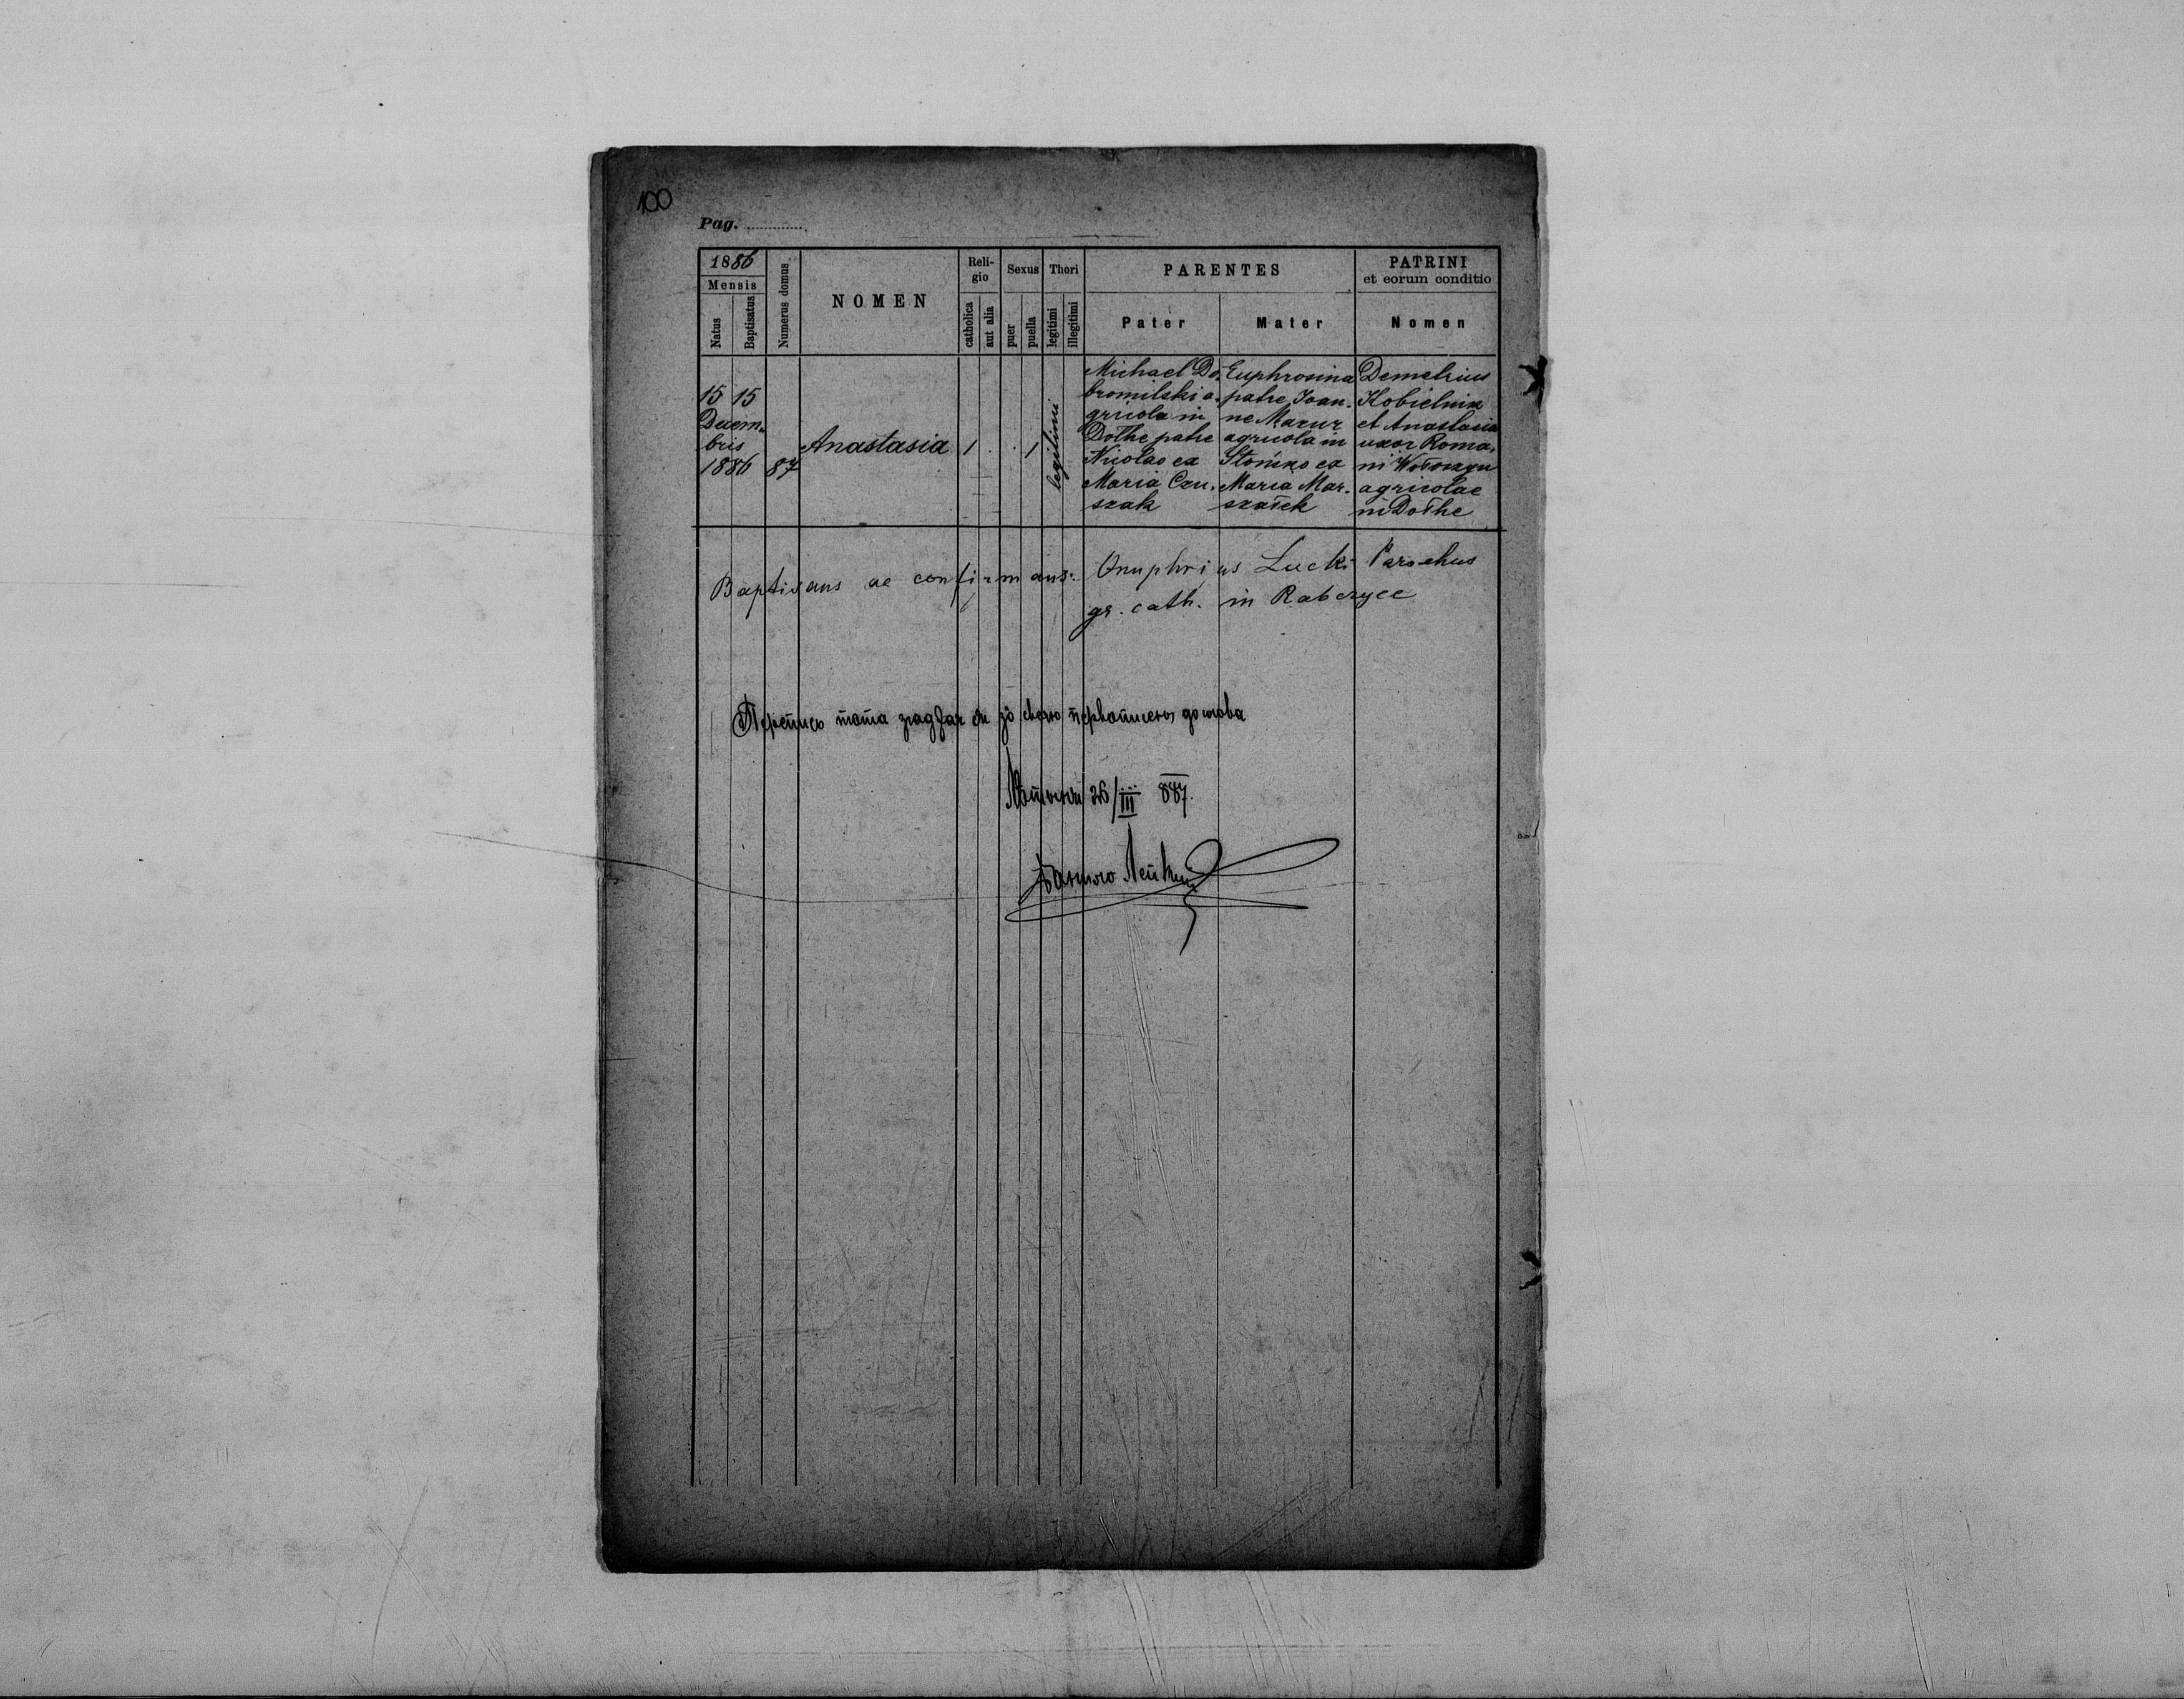 100
Pag.
1886
Mensis
Natus
Baptisatus
Numerus domus
NOMEN
Reli-
gio
catholica
aut alia
Sexus
puer
puella
Thori
legitimi
illegitimi
PARENTES
Pater
Mater
PATRINI
et eorum conditio
Nomen
15 15
Decem-
bris
1886
87
Anastasia
1
1
legitimi
Michael Do-
bromilski a-
gricola in
Dołhe patre
Nicolao ex
Maria Czu-
szak
Euphrosina
patre Joan-
ne Mazur
agricola in
Słońsko ex
Maria Mar-
szałek
Demetrius
Kobielnik
et Anastasia
uxor Roma-
ni Wołoszyn
agricolae
in Dołhe
Baptisans ac confirmans: Onuphrius Lucki Parochus
gr. cath. in Rabczyce
зо своимъ
26/III 887.